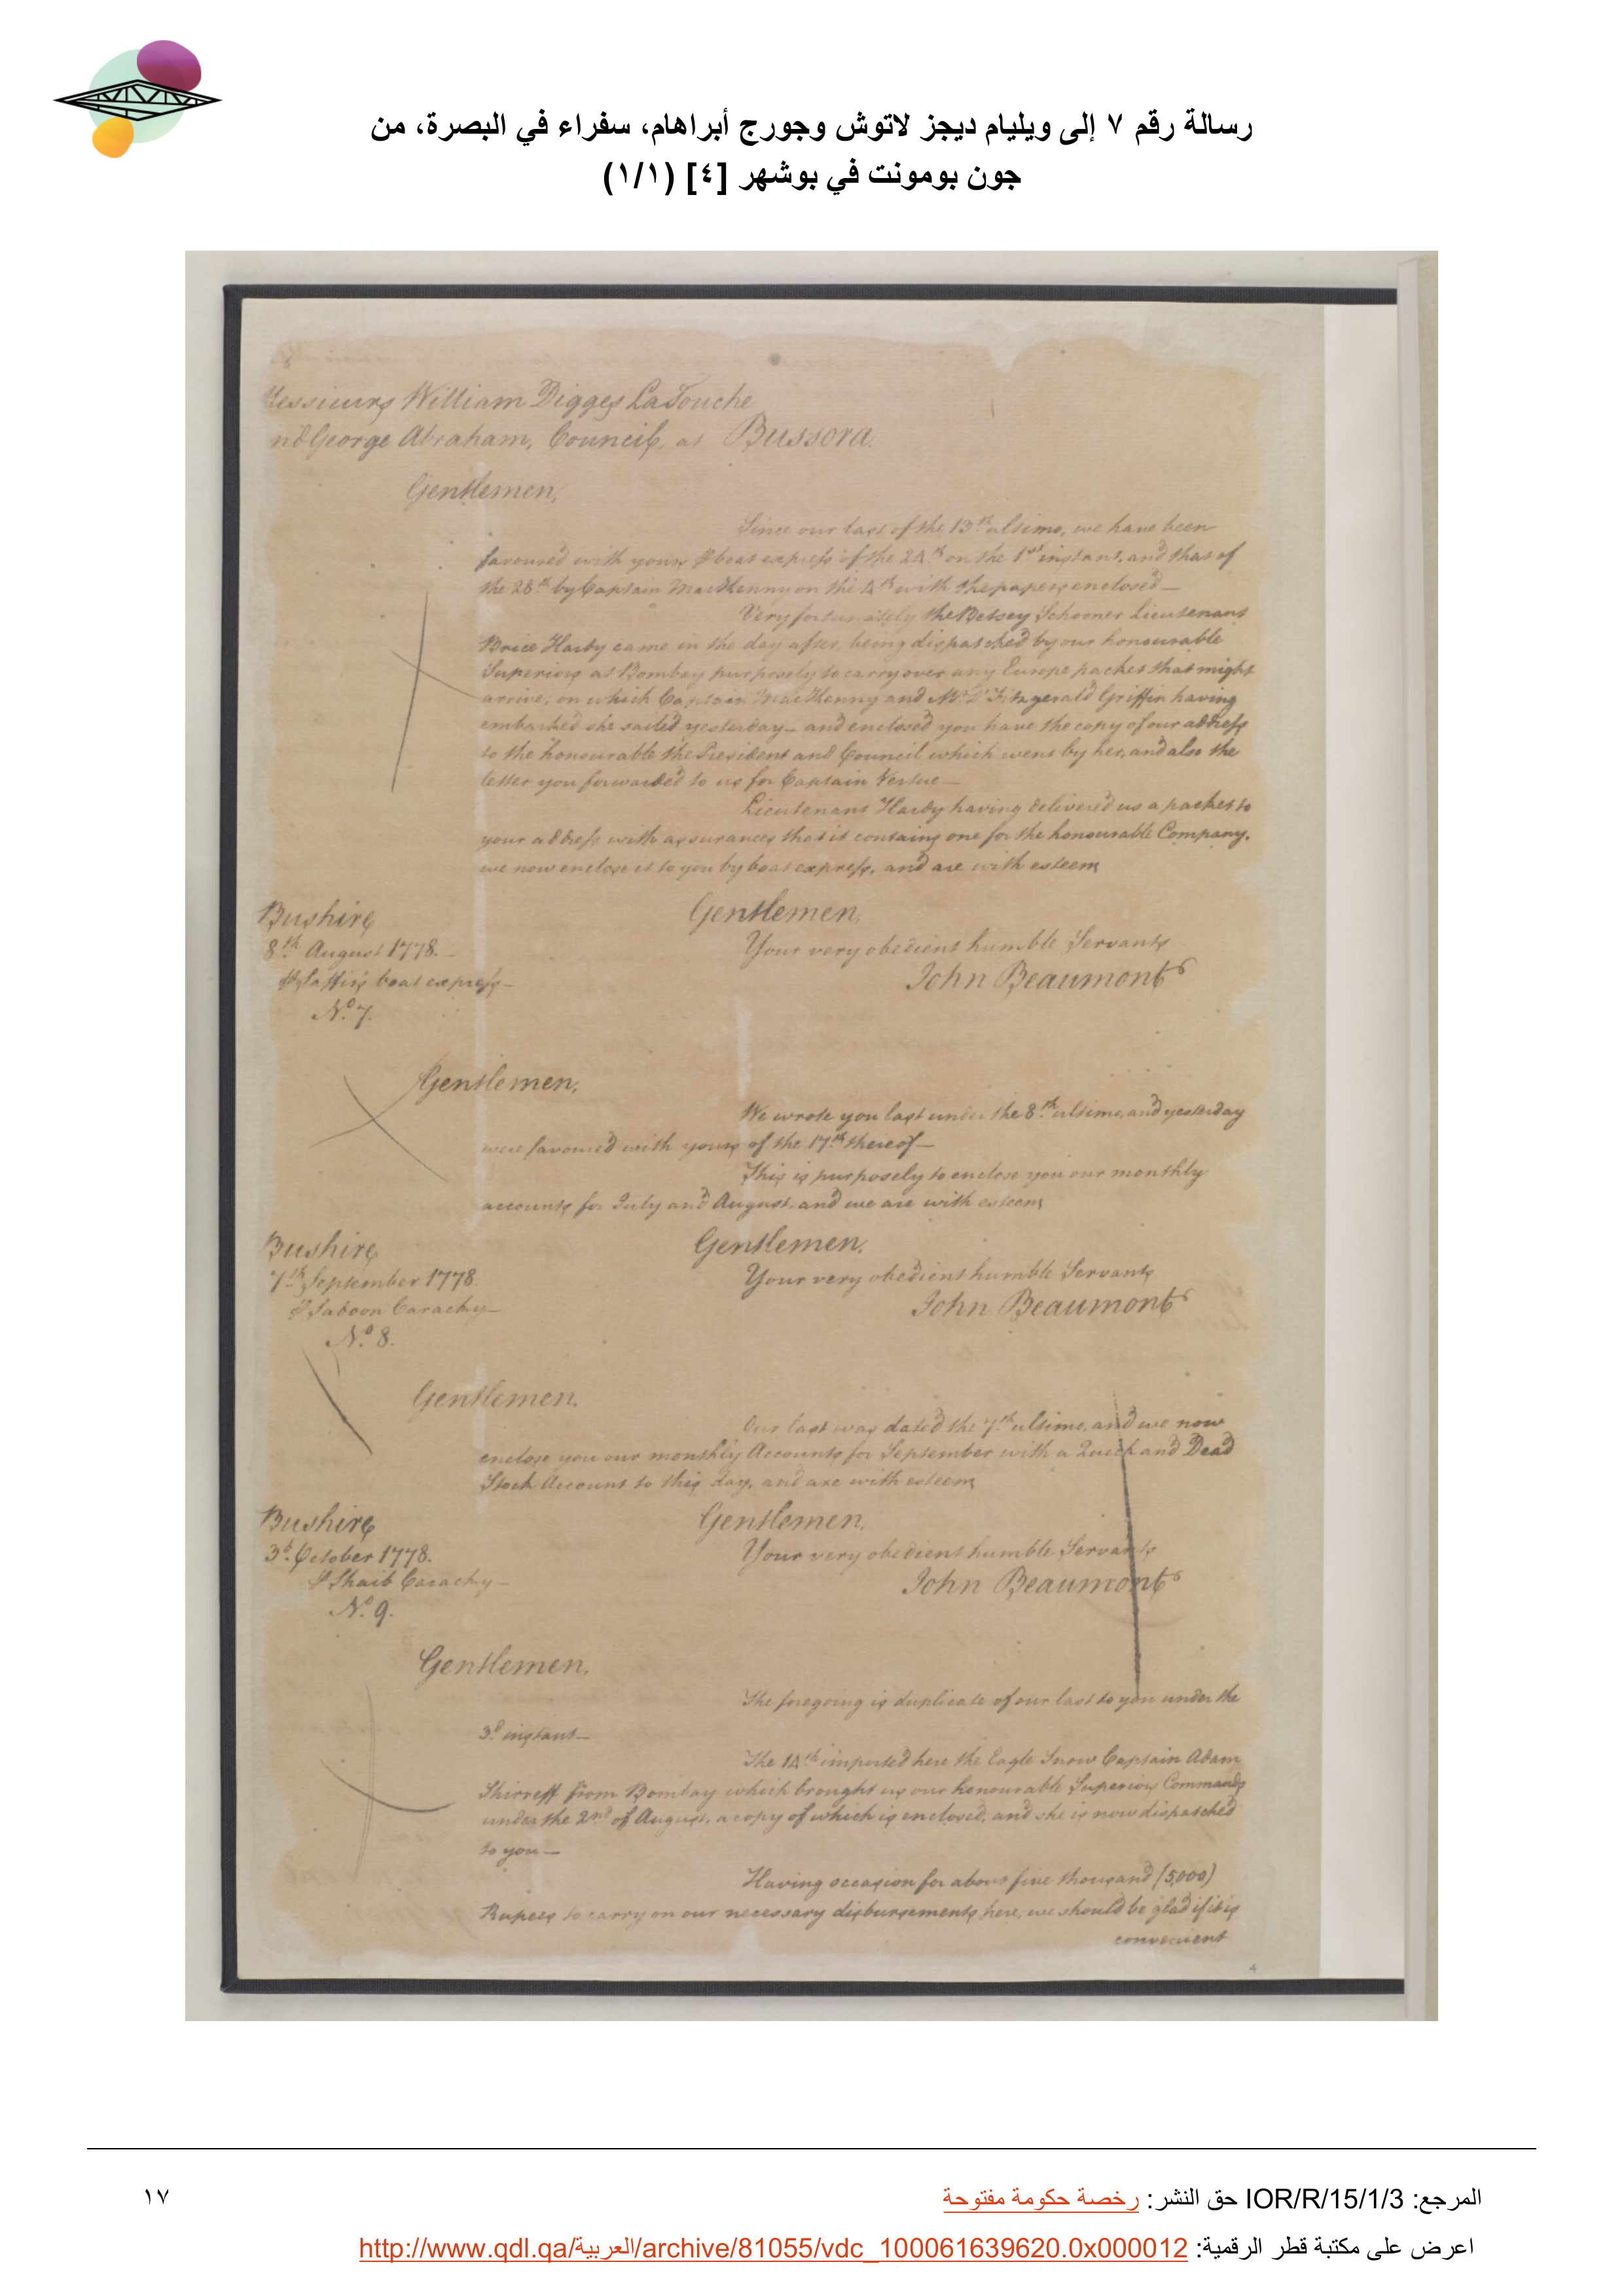 رسالة رقم ٧ إلى ويليام ديجز لاتوش وجورج أبراهام، سفراء في البصرة، من
جون بومونت في بوشهر [٤] (١/١)
Messieurs William Digges LaTouche
nd George Abraham, Council, at Bussora.
Gentlemen,
Since our last of the 13th ultimo, we have been
favoured with yours boat express of the 24th on the 1st instant, and that of
the 28th by Captain on the 4th with the papers enclosed—
Very fortunately the Betsey Schooner Lieutenant
Brice Hardy came in the day after, being dispatched by our honourable
Superiors at Bombay purposely to carry over any Europe packet that might
arrive, on which Captain and Mr. Fitzgerald Griffin having
embarked she sailed yesterday— and enclosed you have the copy of our address
to the honourable the President and Council which went by her, and also the
letter you forwarded to us for Captain Vertue—
Lieutenant Hardy having delivered us a packet to
your address with assurances that it contains one for the honourable Company,
we now enclose it to you by boat express, and are with esteem
Bushire
Gentlemen,
8th August 1778.—
Your very obedient humble Servants
boat express—
John Beaumont
No. 7.
Gentlemen,
We wrote you last under the 8th ultimo, and yesterday
were favoured with yours of the 17th thereof—
This is purposely to enclose you our monthly
accounts for July and August, and we are with esteem
Bushire
Gentlemen,
7th September 1778.
Your very obedient humble Servants
Carachy—
John Beaumont
No. 8.
Gentlemen,
Our last was dated the 7th ultimo, and we now
enclose you our monthly Accounts for September with a Quick and Dead
Stock Account to this day, and are with esteem
Bushire
Gentlemen,
3d. October 1778.
Your very obedient humble Servants
Shaib Carachy—
John Beaumont
No. 9.
Gentlemen,
The foregoing is duplicate of our last to you under the
3d instant—
The 14th imported here the Eagle Snow Captain Adam
Shirreff from Bombay which brought us our honourable Superiors Commands
under the 2nd of August, a copy of which is enclosed, and she is now dispatched
to you—
Having occasion for about five thousand (5,000)
Rupees to carry on our necessary disbursements here, we should be glad if it is
convenient
4
المرجع: IOR/R/15/1/3 حق النشر: رخصة حكومة مفتوحة
١٧
اعرض على مكتبة قطر الرقمية: http://www.qdl.qa/العربية/archive/81055/vdc_100061639620.0x000012